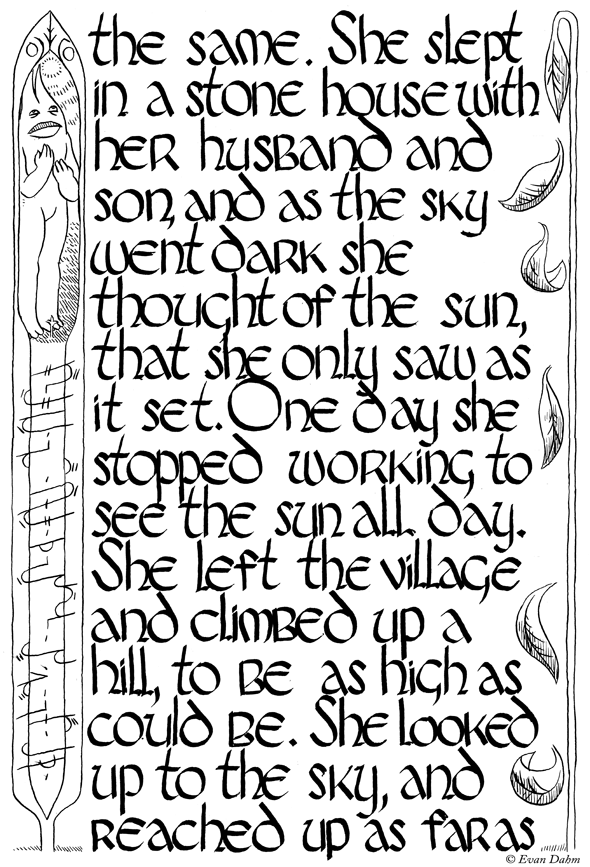 the same. She slept
in a stone house with
her husband and
son, and as the sky
went dark she
thought of the sun,
that she only saw as
it set. One day she
stopped working to
see the sun all day.
She left the village
and climbed up a
hill, to be as high as
could be. She looked
up to the sky, and
reached up as far as
© Evan Dahm